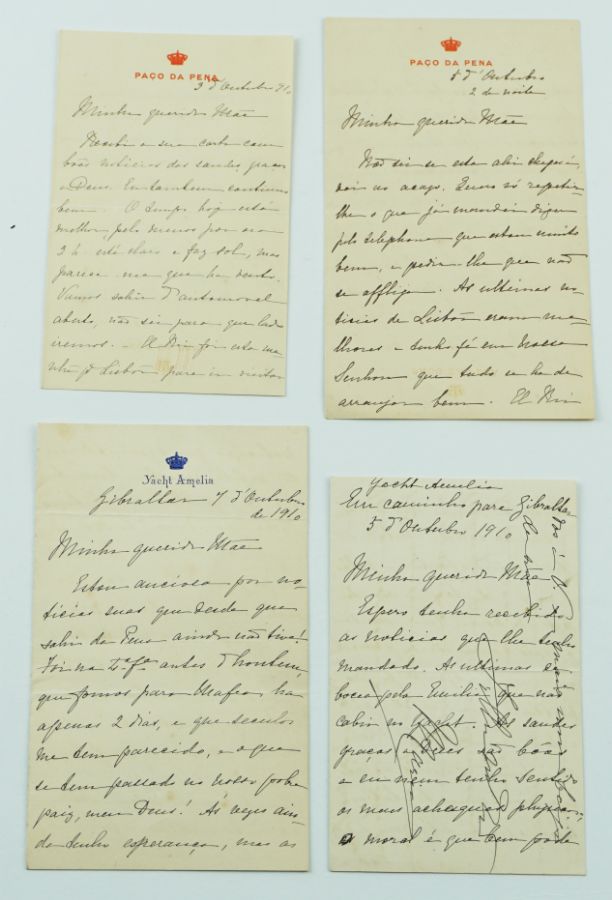 PAÇO DA PENA
3 d'Outubro 910
Minha querida Mãe
Recebi a sua carta com
bôas noticias das saudes, graças
a Deus. Eu tambem continuo
bem. O tempo hoje está
melhor, pelo menos por ora
2 h. está claro e faz sol, mas
parece-me que ha vento.
Vamos sahir d'automovel
aberto, não sei para que lado
iremos. El Rei foi esta ma
nhã p. Lisboa para ir visitar
PAÇO DA PENA
5 d'Outubro
2 da noite
Minha querida Mãe
Não sei se esta ahi chegará,
vai ao acaso. Quero só repetir
lhe o que já mandei dizer
pelo telephone que estou muito
bem, e pedir-lhe que não
se afflija. As ultimas no
ticias de Lisbôa eram me
lhores e tenho fé em Nosso
Senhor que tudo se ha de
arranjar bem. El Rei
Yacht Amelia
Gibraltar 7 d'Outubro
de 1910
Minha querida Mãe
Estou anciosa por no
ticias suas que desde que
sahi da Pena ainda não tive!
Foi na 4.ª fª antes d'hontem,
que fomos para Mafra ha
apenas 2 dias, e que seculos
me tem parecido, e o que
se tem passado no nosso pobre
paiz, meu Deus! Ás vezes ain
da tenho esperança, mas as
Yacht Amelia
Em caminho para Gibraltar
5 d'Outubro 1910
Minha querida Mãe
Espero tenha recebido
as noticias que lhe tenho
mandado. As ultimas de
boca pela Emilia que não
cabia no Yacht. As saudes
graças a Deus são bôas
e eu nem tenho sentido
os meus achaques physicos,
o moral é que bem pode